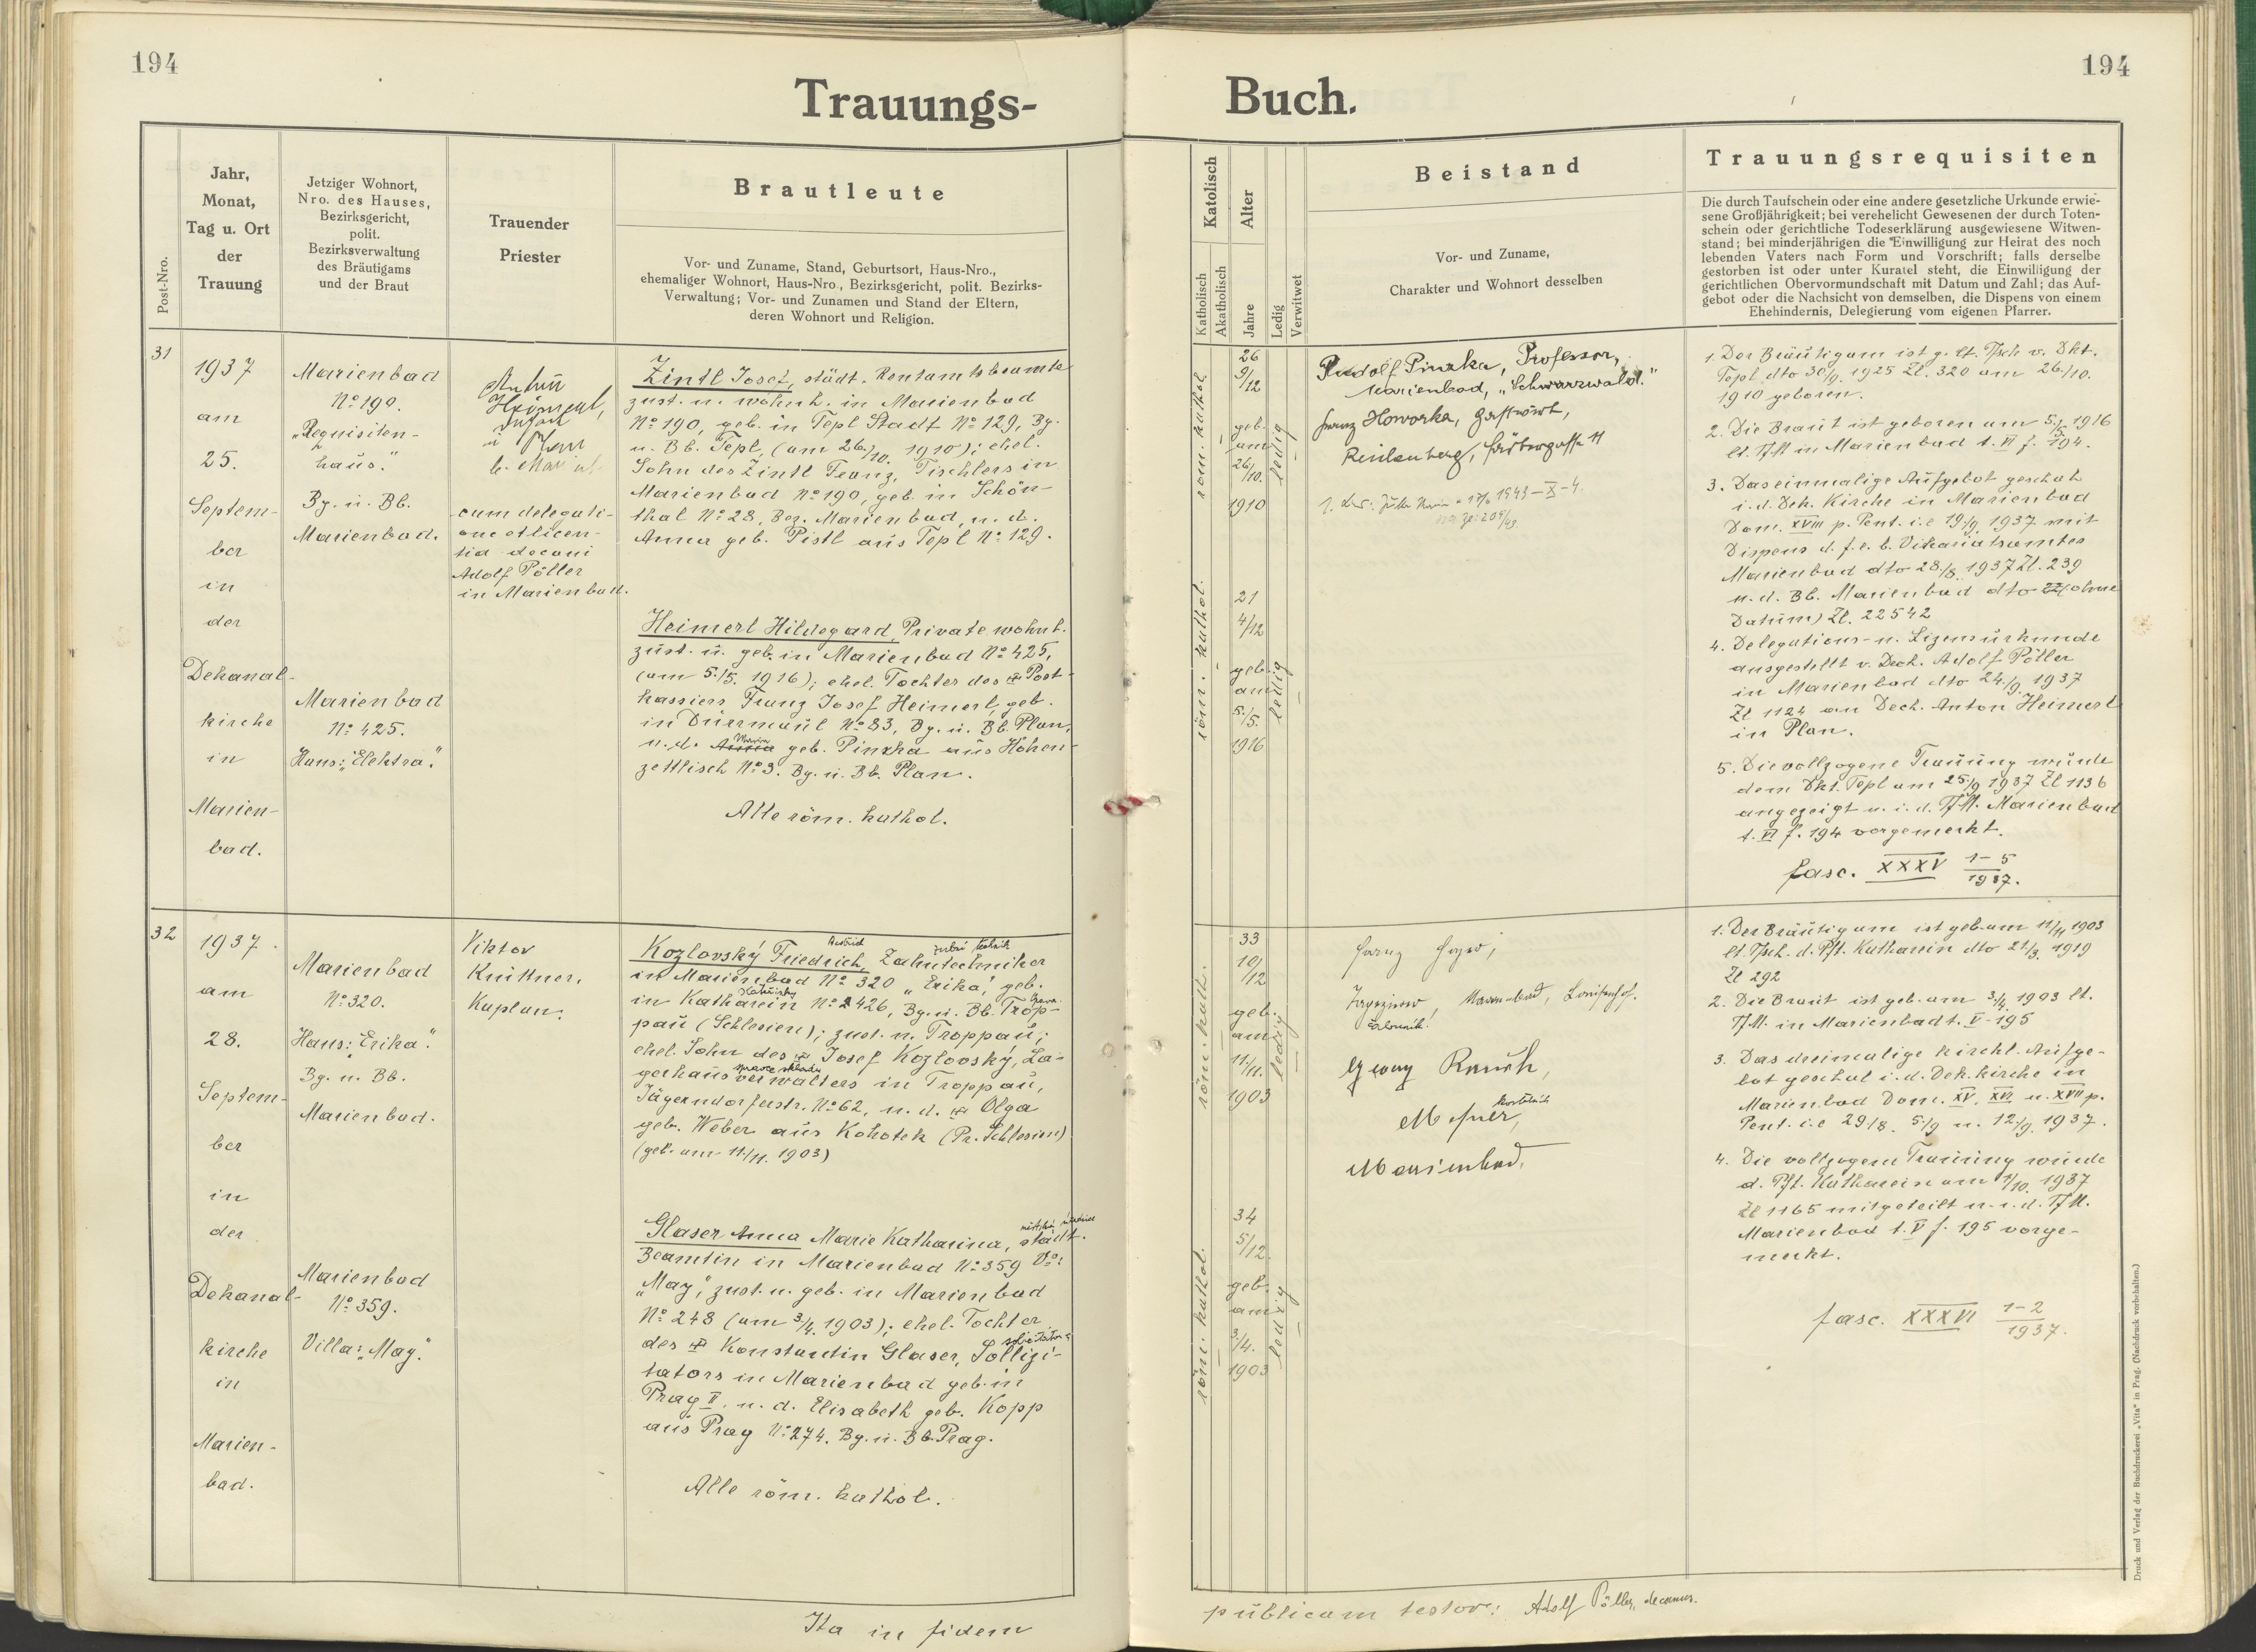 194
194
Trauungs-
Buch.
Post-Nro.
Jahr,
Monat,
Tag u. Ort
der
Trauung
Jetziger Wohnort,
Nro. des Hauses,
Bezirksgericht,
polit.
Bezirksverwaltung
des Bräutigams
und der Braut
Trauender
Priester
Brautleute
Vor- und Zuname, Stand, Geburtsort, Haus-Nro.,
ehemaliger Wohnort, Haus-Nro., Bezirksgericht, polit. Bezirks-
Verwaltung; Vor- und Zunamen und Stand der Eltern,
deren Wohnort und Religion.
Katolisch
Katholisch
Akatholisch
Alter
Jahre
Ledig
Verwitwet
Beistand
Vor- und Zuname,
Charakter und Wohnort desselben
Trauungsrequisiten
Die durch Taufschein oder eine andere gesetzliche Urkunde erwie-
sene Großjährigkeit; bei verehelicht Gewesenen der durch Toten-
schein oder gerichtliche Todeserklärung ausgewiesene Witwen-
stand; bei minderjährigen die Einwilligung zur Heirat des noch
lebenden Vaters nach Form und Vorschrift; falls derselbe
gestorben ist oder unter Kuratel steht, die Einwilligung der
gerichtlichen Obervormundschaft mit Datum und Zahl; das Auf-
gebot oder die Nachsicht von demselben, die Dispens von einem
Ehehindernis, Delegierung vom eigenen Pfarrer.
31
1937
am
25.
Septem-
ber
in
der
Dekanal-
kirche
in
Marien-
bad.
Marienbad
No 190.
"Requisiten-
haus."
Bg. u. Bb.
Marienbad.
Marienbad
No 425.
Haus: "Elektra".
cum delegati-
one et licen-
tia decani
Adolf Pöller
in Marienbad.
Zintl Josef, städt. Rentamtsbeamte
zust. u. wohnh. in Marienbad
No 190, geb. in Tepl Stadt No 129, Bg.
u. Bb. Tepl, (am 26./10. 1910); ehel.
Sohn des Zintl Franz, Tischlers in
Marienbad No 190, geb. in Schön-
thal No 28, Bez. Marienbad, u. d.
Anna geb. Pistl aus Tepl No 129.
Heimerl Hildegard, Private wohnt.
zust. u. geb. in Marienbad No 425,
(am 5./5. 1916); ehel. Tochter des Post-
kassiers Franz Josef Heimerl, geb.
in Dürrmaul No 83, Bg. u. Bb. Plan,
Maria
u. d. Anna geb. Pinzka aus Hohen-
zettlisch No 3. Bg. u. Bb. Plan.
Alle röm. kathol.
röm. kathol.
26
9/12
geb.
am
26/10.
1910
ledig
röm. kathol.
21
4/12
geb.
am
5./5.
1916
ledig
Rudolf Pinzka, Professor,
Marienbad, "Schwarzwald."
Franz Howorka, Gastwirt,
1. Der Bräutigam ist g. lt. Tsch v. Dkt.
Tepl dto 30/9. 1925 Zl. 320 am 26./10.
1910 geboren.
2. Die Braut ist geboren am 5./5. 1916
lt. TM in Marienbad t. VI f. 194.
3. Das einmalige Aufgebot geschah
i. d. Dek. Kirche in Marienbad
Dom. XVIII p. Pent. i.e 19/9. 1937 mit
Dispens d. f. e. b. Vikariatsamtes
Marienbad dto 28./8. 1937 Zl. 239
u. d. Bb. Marienbad dto (ohne
Datum) Zl. 22542
4. Delegations- u. Lizenzurkunde
ausgestellt v. Dech. Adolf Pöller
in Marienbad dto 24./9. 1937
Zl 1124 an Dech. Anton Heimerl
in Plan.
5. Die vollzogene Trauung wurde
dem Dkt. Tepl am 25/9 1937 Zl 1136
angezeigt u. i. d. TM. Marienbad
t. VI f. 194 vorgemerkt.
fasc. XXXV 1-5
1937.
32
1937.
am
28.
Septem-
ber
in
der
Dekanal-
kirche
in
Marien-
bad.
Marienbad
No 320.
Haus: "Erika".
Bg. u. Bb.
Marienbad.
Marienbad
No 359.
Villa: "May".
Viktor
Knittner,
Kaplan.
zubní technik
Kozlovský Friedrich, Zahntechniker
in Marienbad No 320 "Erika", geb.
in Katharein No 2426, Bg. u. Bb. Trop-
pau (Schlesien); zust. n. Troppau;
ehel. Sohn des Josef Kozlovský, La-
správce skladu
gerhausverwalters in Troppau,
Jägerndorferstr. No 62, u. d. Olga
geb. Weber aus Kokotek (Pr. Schlesien)
(geb. am 11./11. 1903)
městská úřednice
Glaser Anna Marie Katharina, städt.
Beamtin in Marienbad No 359 Va:
"May", zust. u. geb. in Marienbad
No 248 (am 3./4. 1903); ehel. Tochter
des Konstantin Glaser, Sollizi-
tators in Marienbad geb. in
Prag II. u. d. Elisabeth geb. Kopp
aus Prag No 274. Bg. u. Bb. Prag.
Alle röm. kathol.
röm. kath.
33
10/12
geb.
am
11/11.
1903
ledig
röm. kathol.
34
5/12.
geb.
am
3./4.
1903
ledig
Georg Rausch,
kostelník
Mesner,
Marienbad.
1. Der Bräutigam ist geb. am 11/11 1903
lt. Tsch. d. Pft. Katharein dto 21/3. 1919
Zl 292
2. Die Braut ist geb. am 3./4. 1903 lt.
TM. in Marienbad t. V - 195
3. Das dreimalige kirchl. Aufge-
bot geschah i. d. Dek. kirche in
Marienbad Dom. XV. XVI. u. XVII p.
Pent. i.e 29./8. 5./9 u. 12./9. 1937.
4. Die vollzogene Trauung wurde
d. Pft. Katharein am 1/10. 1937
Zl 1165 mitgeteilt u. i. d. TM.
Marienbad t. V f. 195 vorge-
merkt.
fasc. XXXVI 1-2
1937.
Ita in fidem
publicam testor: Adolf Pöller, decanus.
Druck und Verlag der Buchdruckerei „Vita“ in Prag. (Nachdruck vorbehalten.)